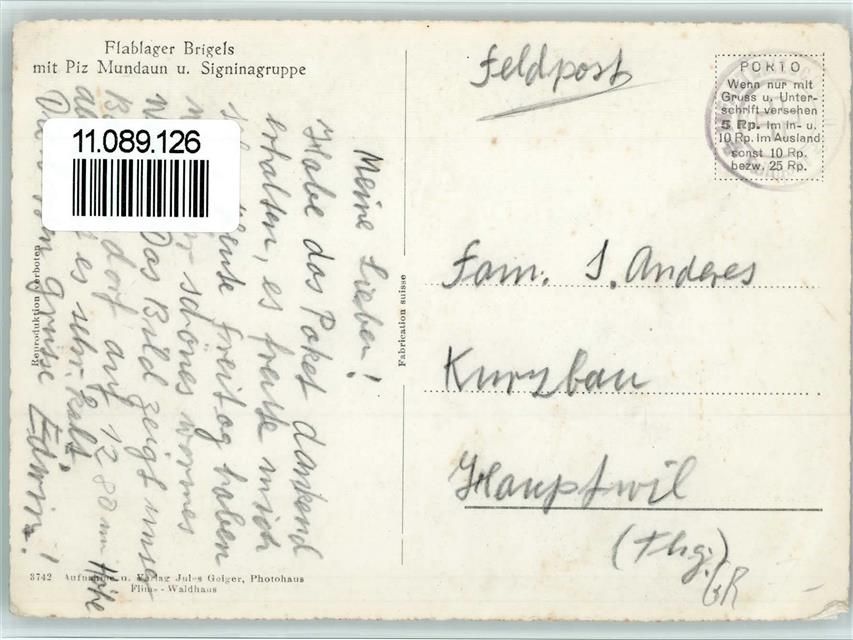 Flablager Brigels
mit Piz Mundaun u. Signinagruppe
Feldpost
PORTO
Wenn nur mit
Gruss u. Unter-
schrift versehen
5 Rp. im In- u.
10 Rp. im Ausland
sonst 10 Rp.
bezw. 25 Rp.
11.089.126
Meine Lieben!
Habe das Paket dankend
erhalten, es freute mich
heute Freitag haben
schönes warmes
Das Bild zeigt unser
dorf auf 1280 m Höhe
es sehr kalt
Grüsse Edwin!
Reproduktion verboten
Fabrication suisse
Fam. J. Anderes
Kurzbau
Hauptwil
(Thg.)
GR
3742 Aufnahme u. Verlag Jules Geiger, Photohaus
Flims-Waldhaus